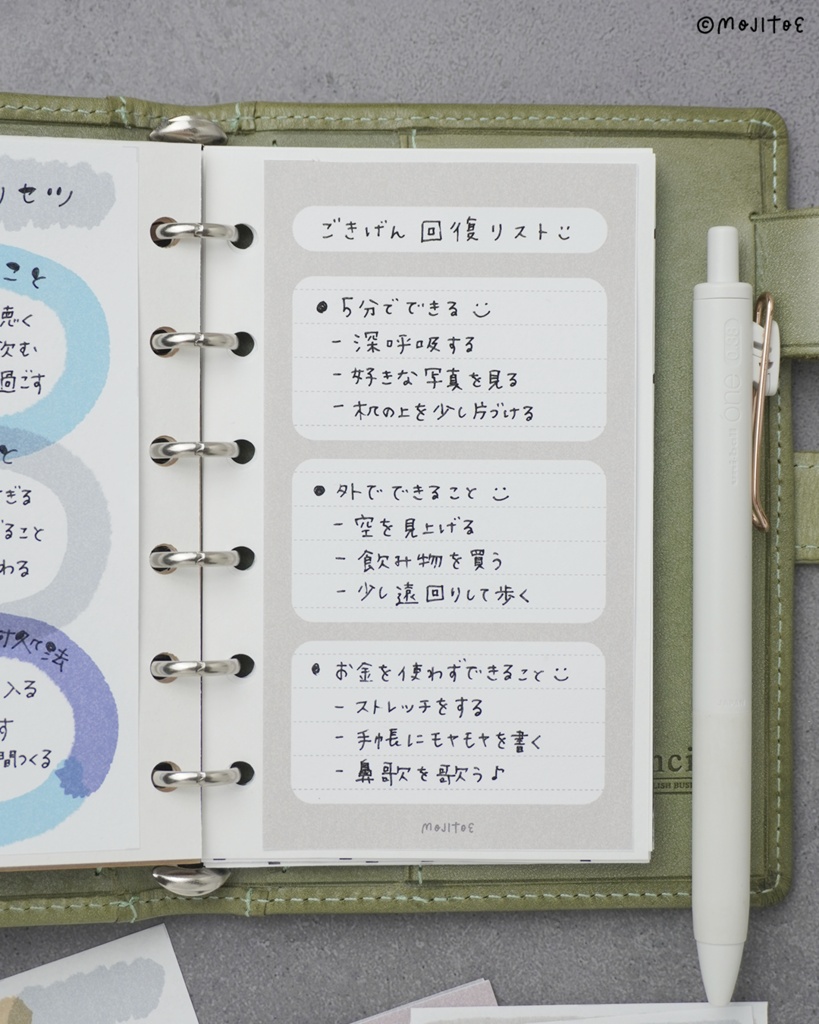 ©MOJITOE
リセツ
こと
聴く
飲む
過ごす
と
ぎる
ること
わる
対処法
入る
す
間つくる
ごきげん回復リスト
● 5分でできる
- 深呼吸する
- 好きな写真を見る
- 机の上を少し片づける
● 外でできること
- 空を見上げる
- 飲み物を買う
- 少し遠回りして歩く
● お金を使わずできること
- ストレッチをする
- 手帳にモヤモヤを書く
- 鼻歌を歌う♪
MOJITOE
uni-ball one 0.38